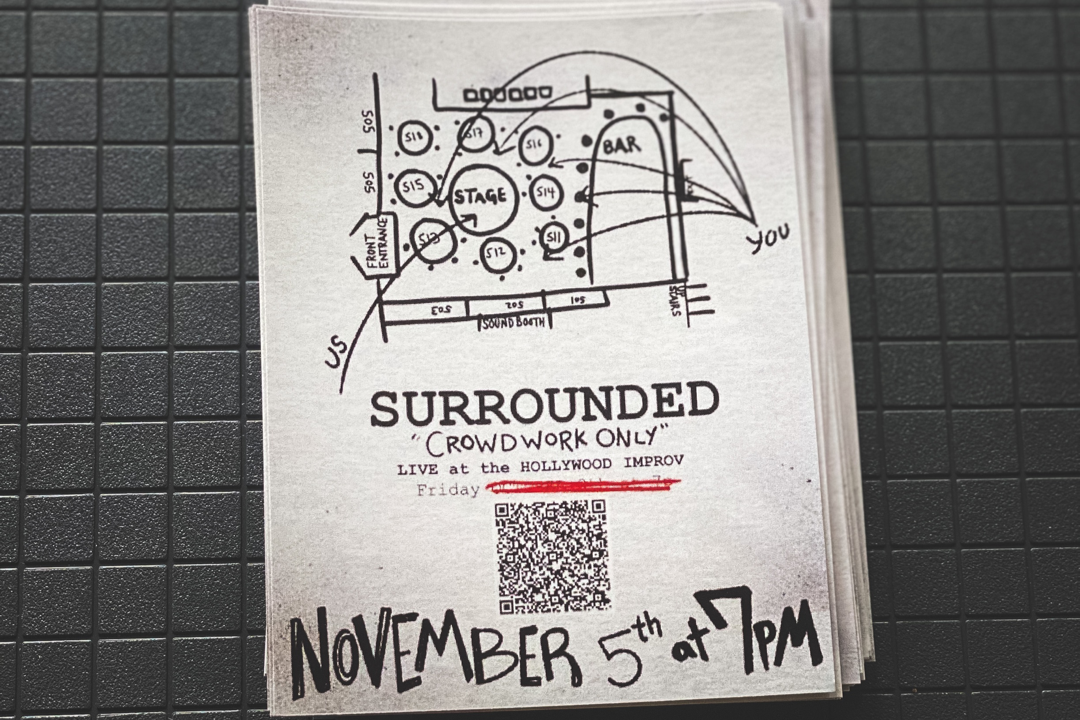 505
505
S18
S17
S16
BAR
S15
STAGE
S14
S13
S12
S11
FRONT
ENTRANCE
YOU
US
503
502
501
SOUND BOOTH
STAIRS
SURROUNDED
"CROWDWORK ONLY"
LIVE at the HOLLYWOOD IMPROV
Friday
NOVEMBER 5th at 7PM